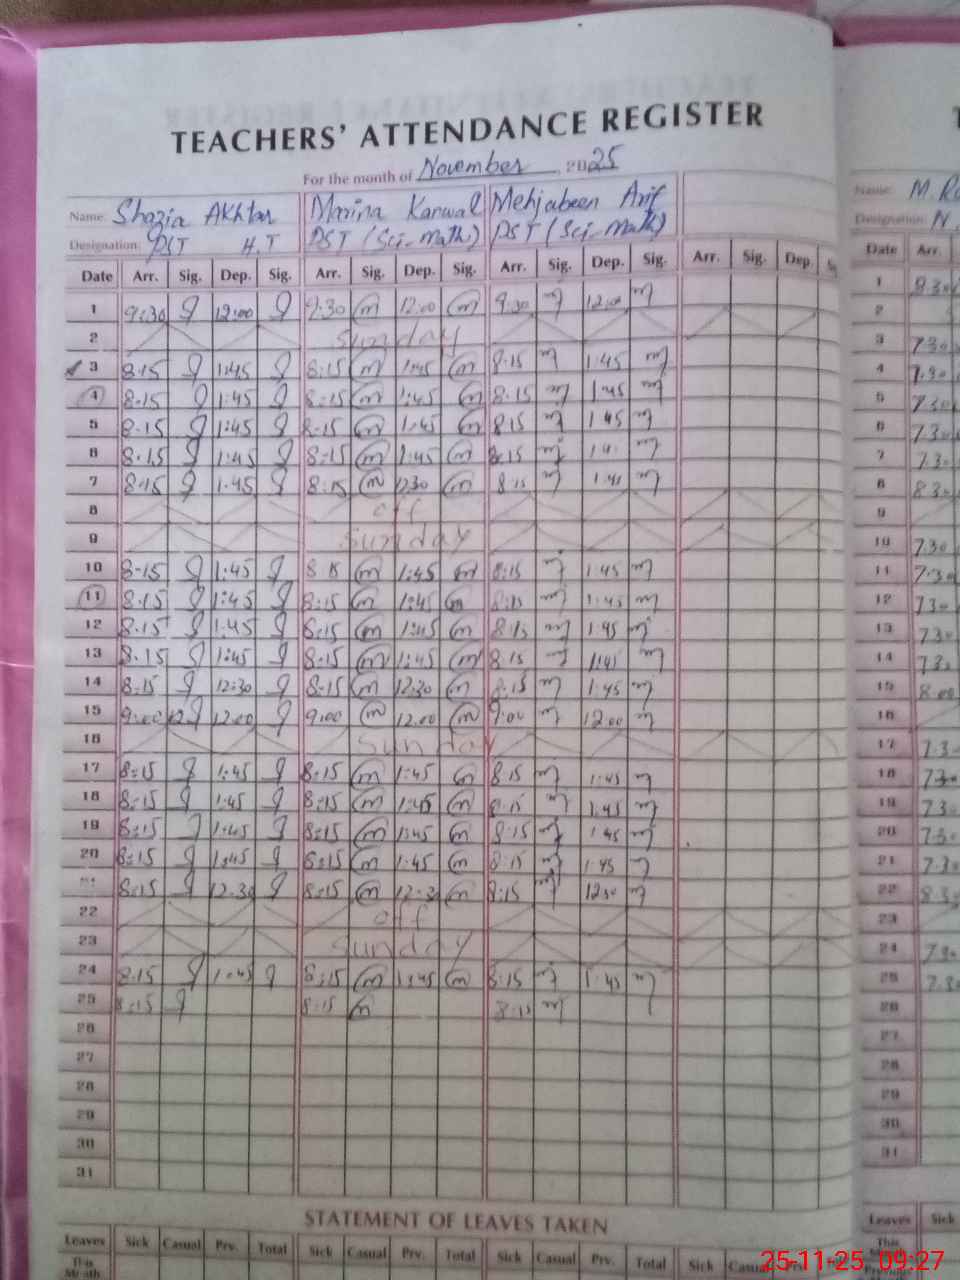 TEACHERS' ATTENDANCE REGISTER
For the month of November 2025
Name: Shazia Akhtar Marina Kanwal Mehjabeen Arif
Designation: PST H.T PST (Sci-Math) PST (Sci-Math)
Date Arr. Sig. Dep. Sig. Arr. Sig. Dep. Sig. Arr. Sig. Dep. Sig. Arr. Sig. Dep.
1 9:30 12:00 9:30 m 12:00 m 9:30 m 12:00 m
2 Sunday
3 8.15 1:45 8:15 m 1:45 m 8.15 m 1.45 m
4 8.15 1:45 8:15 m 1:45 m 8.15 m 1.45 m
5 8.15 1:45 8.15 m 1.45 m 8.15 m 1.45 m
6 8.15 1:45 8:15 m 1:45 m 8.15 m m
7 8.15 1.45 8:15 m 12.30 m 8.15 m 1.45 m
8 off
9 Sunday
10 8.15 1:45 8.15 m 1:45 m 8:15 m 1.45 m
11 8.15 1:45 8:15 m 1:45 m 8:15 m 1.45 m
12 8.15 1.45 8:15 m 1:45 m 8.15 m 1.45 m
13 8.15 1:45 8.15 m 1:45 m 8.15 m 1:45 m
14 8.15 12:30 8.15 m 12:30 m 8.15 m 1.45 m
15 9:00 12:00 9:00 m 12.00 m 9:00 m 12.00 m
16 Sunday
17 8:15 1:45 8:15 m 1:45 m 8.15 m 1.45 m
18 8:15 1.45 8:15 m 1:45 m 8.15 m 1.45 m
19 8:15 1:45 8:15 m 1:45 m 8:15 m 1.45 m
20 8:15 1:45 8:15 m 1.45 m 8.15 m 1.45 m
8:15 12.30 8:15 m 12:30 m 8:15 m 12.30 m
22 off
23 Sunday
24 8.15 1:45 8:15 m 1:45 m 8.15 m 1.45 m
25 8:15 8.15 m 8.15 m
26
27
28
29
30
31
STATEMENT OF LEAVES TAKEN
Leaves Sick Casual Prv. Total Sick Casual Prv. Total Sick Casual Prv. Total Sick Casual
This Month
Name: M.
Designation: N.
Date Arr.
1 8.30
2
3 7.30
4 7.30
5 7.30
6 7.30
7 7.30
8 8.30
9
10 7.30
11 7.30
12 7.30
13 7.30
14 7.30
15 8.00
16
17 7.3
18 7.30
19 7.30
20 7.30
21 7.30
22 8.30
23
24 7.30
25 7.30
26
27
28
29
30
31
Leaves Sick
This
25-11-25 09:27